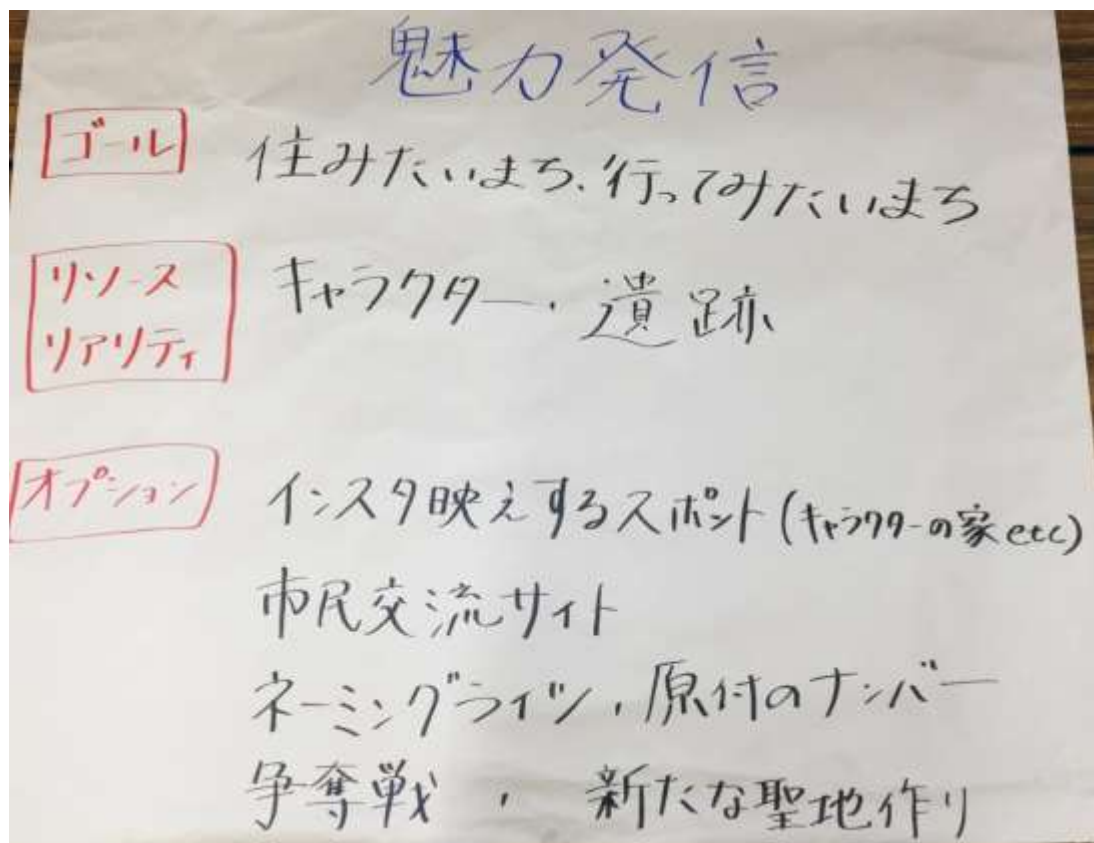 魅力発信
ゴール 住みたいまち、行ってみたいまち
リソース
リアリティ
キャラクター、遺跡
オプション インスタ映えするスポット(キャラクターの家etc)
市民交流サイト
ネーミングライツ、原付のナンバー
争奪戦、新たな聖地作り